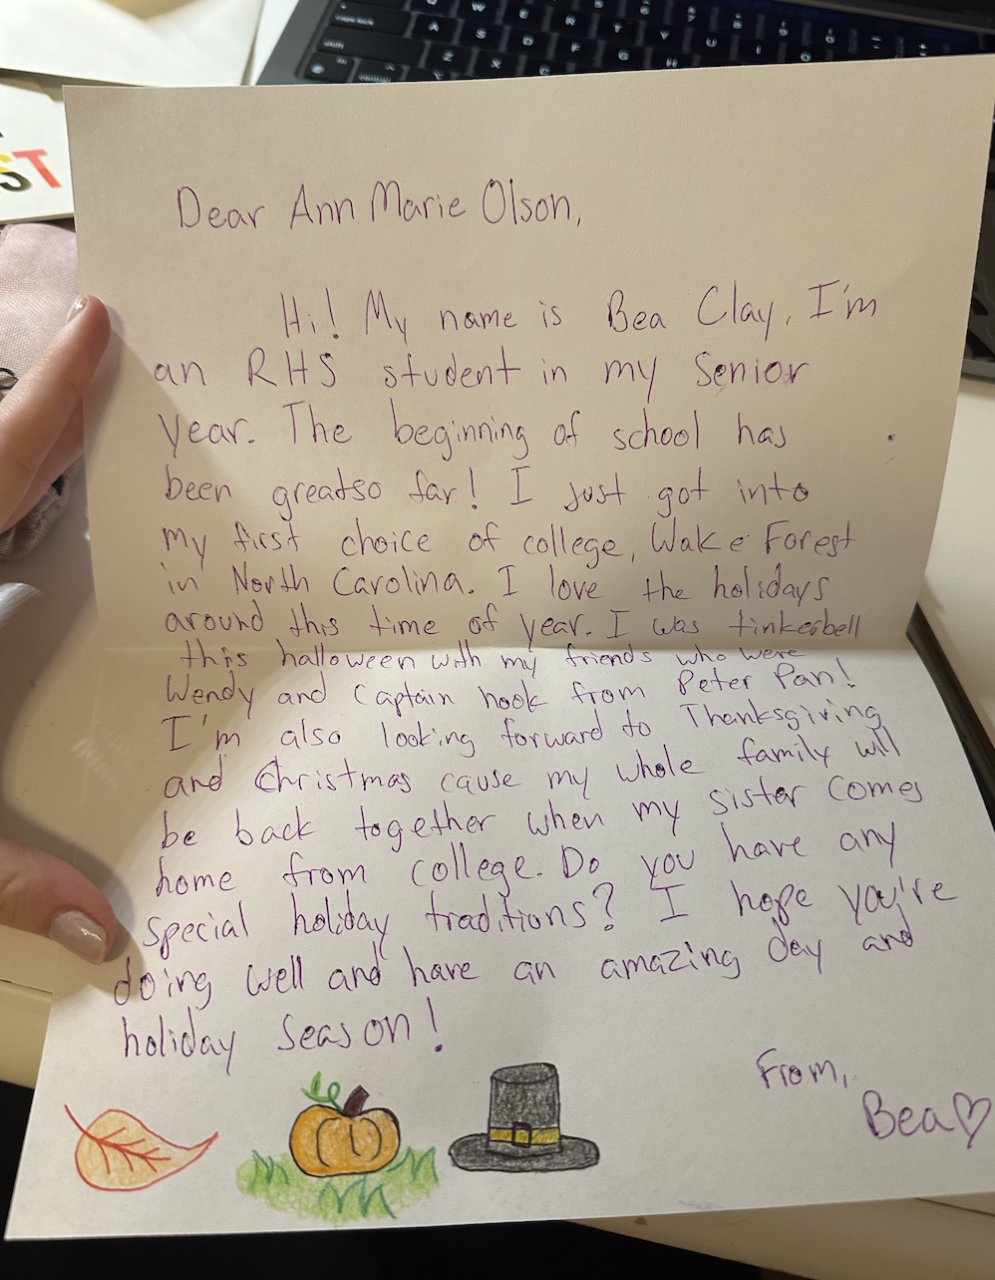 Dear Ann Marie Olson,
Hi! My name is Bea Clay, I'm
an RHS student in my Senior
year. The beginning of school has
been greatso far! I just got into
my first choice of college, Wake Forest
in North Carolina. I love the holidays
around this time of year. I was tinkerbell
this halloween with my friends who were
Wendy and Captain hook from Peter Pan!
I'm also looking forward to Thanksgiving
and Christmas cause my whole family will
be back together when my sister comes
home from college. Do you have any
special holiday traditions? I hope you're
doing well and have an amazing day and
holiday season!
From,
Bea♡